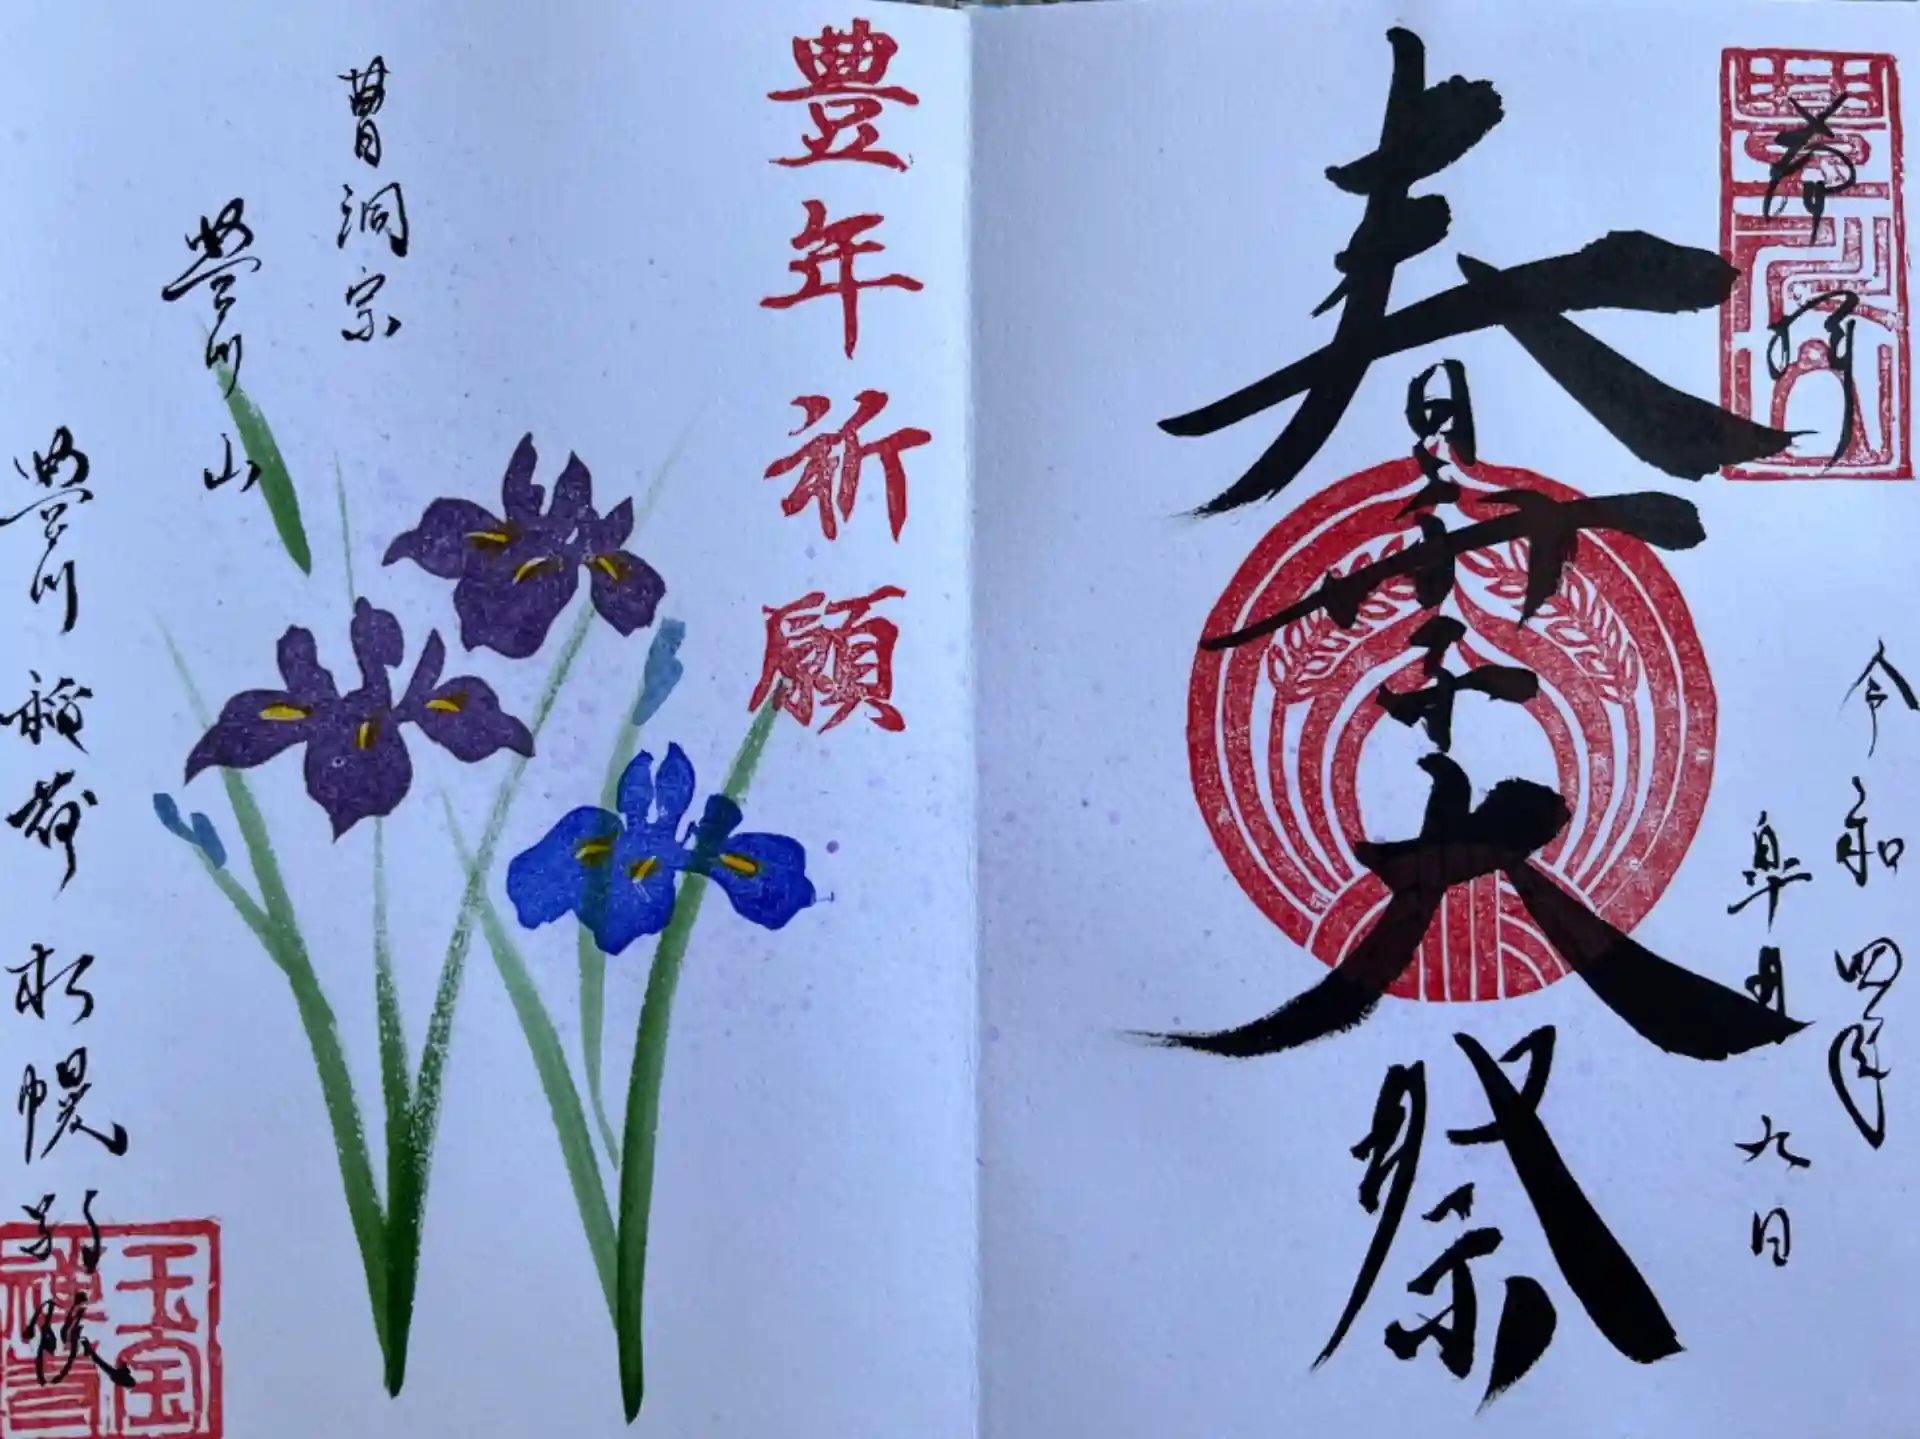 奉拝
令和四年
皐月九日
春季大祭
豊年祈願
曹洞宗
豊川山
豊川稲荷札幌別院